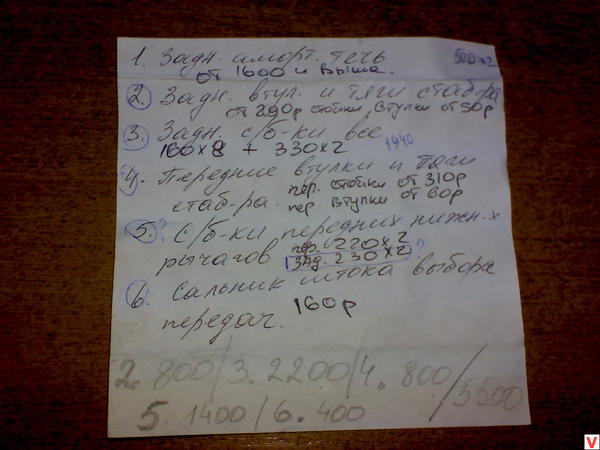 1. Задн. аморт. течь 500x2
от 1600 и выше.
2. Задн. втул. и тяги стаб-ра
от 290р стойки, втулки от 50р
3. Задн. с/б-ки все
160x8 + 330x2 1940
4. Передние втулки и тяги
пер. стойки от 310р
стаб-ра. пер. втулки от 60р
5. ? с/б-ки передних нижн-х
рычагов пер. 220x2
зад. 230x2 ?
6. Сальник штока выбора
передач. 160р
2. 800/3. 2200/4. 800/5500
5. 1400/6. 400
V